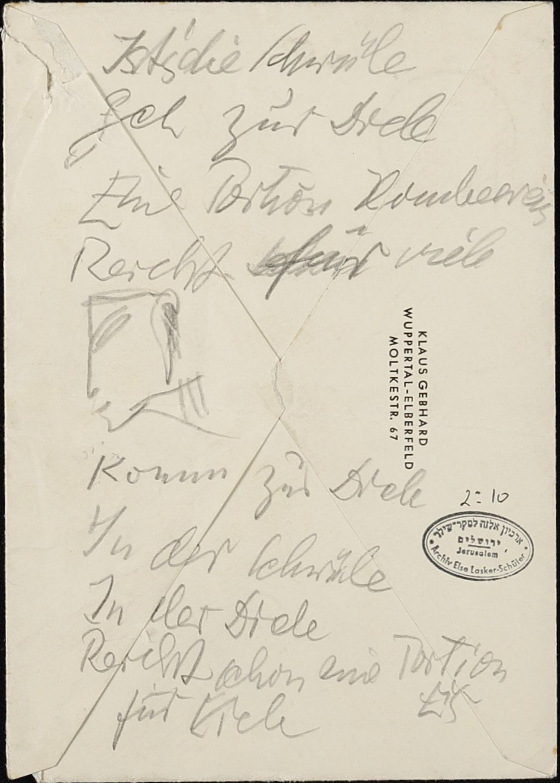 Ist's die Schwüle
Geh zur Diele
Eine Portion Himbeereis
Reicht für viele
KLAUS GEBHARD
WUPPERTAL-ELBERFELD
MOLTKESTR. 67
Komm zur Diele
2:10
ארכיון אלזה לסקר-שילר
ירושלים
Jerusalem
Archiv Else Lasker-Schüler
In der Schwüle
In der Diele
Reicht schon eine Portion
Eis
für Viele